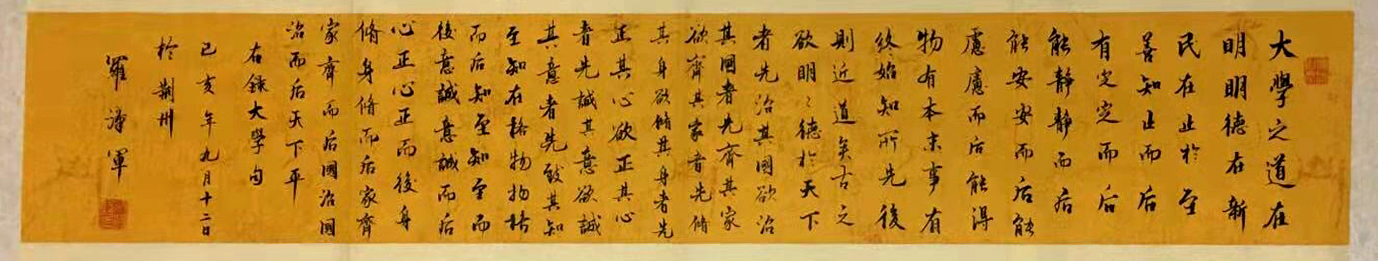 大學之道在
明明德在新
民在止於至
善知止而后
有定定而后
能静静而后
能安安而后能
慮慮而后能得
物有本末事有
終始知所先後
則近道矣古之
欲明〻德於天下
者先治其國欲治
其國者先齊其家
欲齊其家者先脩
其身欲脩其身者先
正其心欲正其心
者先誠其意欲誠
其意者先致其知
至知在格物物格
而后知至知至而
後意誠意誠而后
心正心正而後身
脩身脩而后家齊
家齊而后國治國
治而后天下平
右錄大學句
己亥年九月十二日
於荆州
羅漳軍